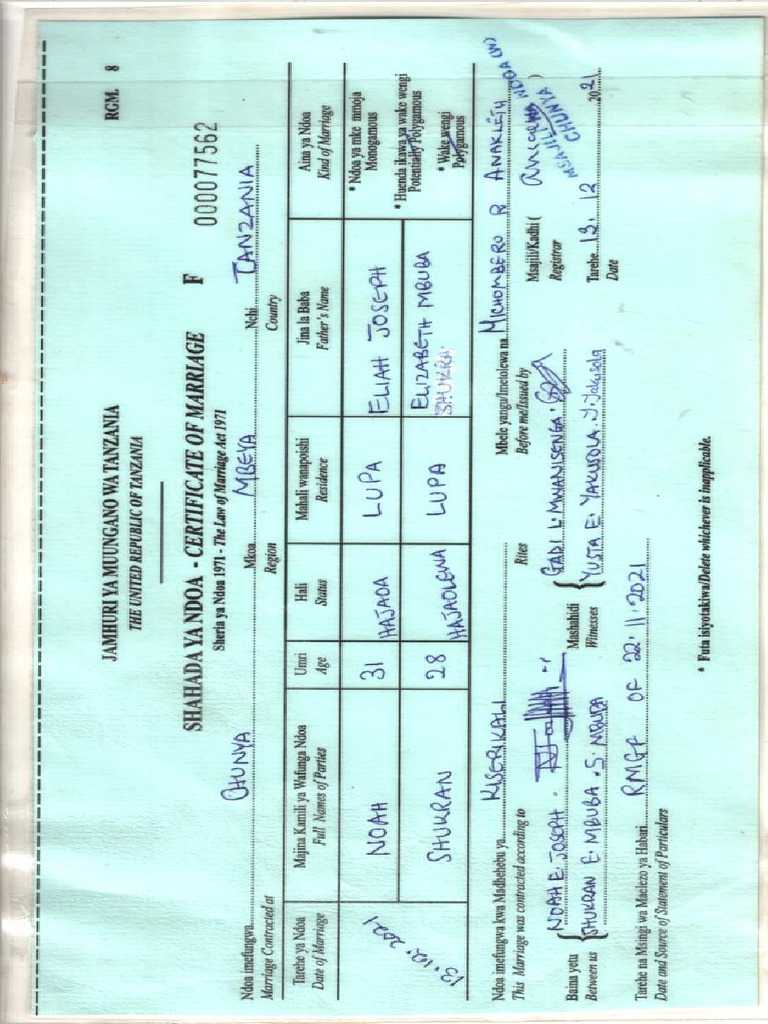 JAMHURI YA MUUNGANO WA TANZANIA
THE UNITED REPUBLIC OF TANZANIA
RGM. 8
SHAHADA YA NDOA - CERTIFICATE OF MARRIAGE F 000077562
Sheria ya Ndoa 1971 - The Law of Marriage Act 1971
Ndoa imefungwa CHUNYA Mkoa MBEYA Nchi TANZANIA
Marriage Contracted at Region Country
Tarehe ya Ndoa Majina Kamili ya Wafunga Ndoa Umri Hali Mahali wanapoishi Jina la Baba Aina ya Ndoa
Date of Marriage Full Names of Parties Age Status Residence Father's Name Kind of Marriage
13.12.2021 NOAH 31 HAJAOA LUPA ELIAH JOSEPH * Ndoa ya mke mmoja
Monogamous
* Huenda ikawa ya wake wengi
Potentially Polygamous
SHUKRAN 28 HAJAOLEWA LUPA ELIZABETH MBUBA * Wake wengi
Polygamous
Ndoa imefungwa kwa Madhehebu ya KISERIKALI Mbele yangu/Imetolewa na MICHOMBERO R ANAKLETH
This Marriage was contracted according to Rites Before me/Issued by
NOAH E. JOSEPH GADI L MWANISENGA Msajili/Kadhi ( )
Baina yetu Mashahidi Registrar
Between us SHUKRAN E. MBUBA . S. MBUBA Witnesses YUSTA E. YAKUSOLA. Y. Yakusola
MSAJILI NDOA (W)
CHUNYA
Tarehe 13. 12 2021
Date
Tarehe na Msingi wa Maelezo ya Habari RMGF OF 22.11.2021
Date and Source of Statement of Particulars
* Futa isiyotakiwa/Delete whichever is inapplicable.